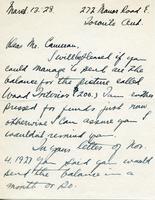 March 12. 28. 272 Road E.
Toronto Ont.
Dear Mr. Cameron,
I will be pleased if you
could manage to send me the
balance for the picture called
Wood Interior $200.) I am rather
pressed for funds just now
otherwise I can assure you I
wouldn't remind you.
In your letter of Nov.
4, 1927 you said you would
send the balance in a
month or so.